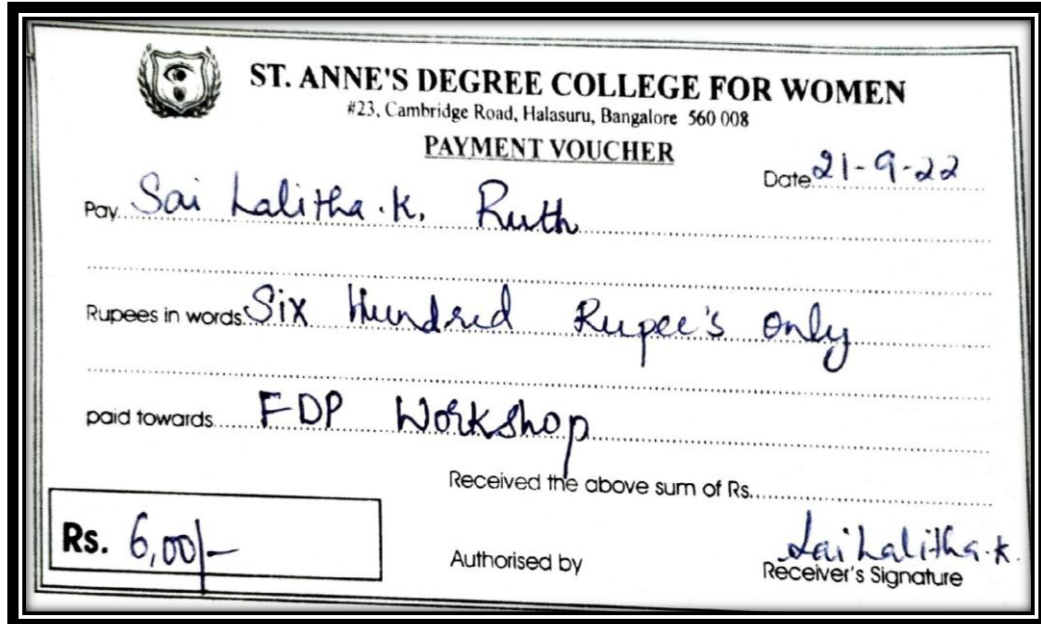 ST. ANNE'S DEGREE COLLEGE FOR WOMEN
#23, Cambridge Road, Halasuru, Bangalore 560 008
PAYMENT VOUCHER
Date 21-9-22
Pay Sai Lalitha.K. Ruth
Rupees in words Six Hundred Rupee's only
paid towards FDP Workshop
Received the above sum of Rs.
Rs. 6,00/-
Authorised by
Sai Lalitha.K.
Receiver's Signature